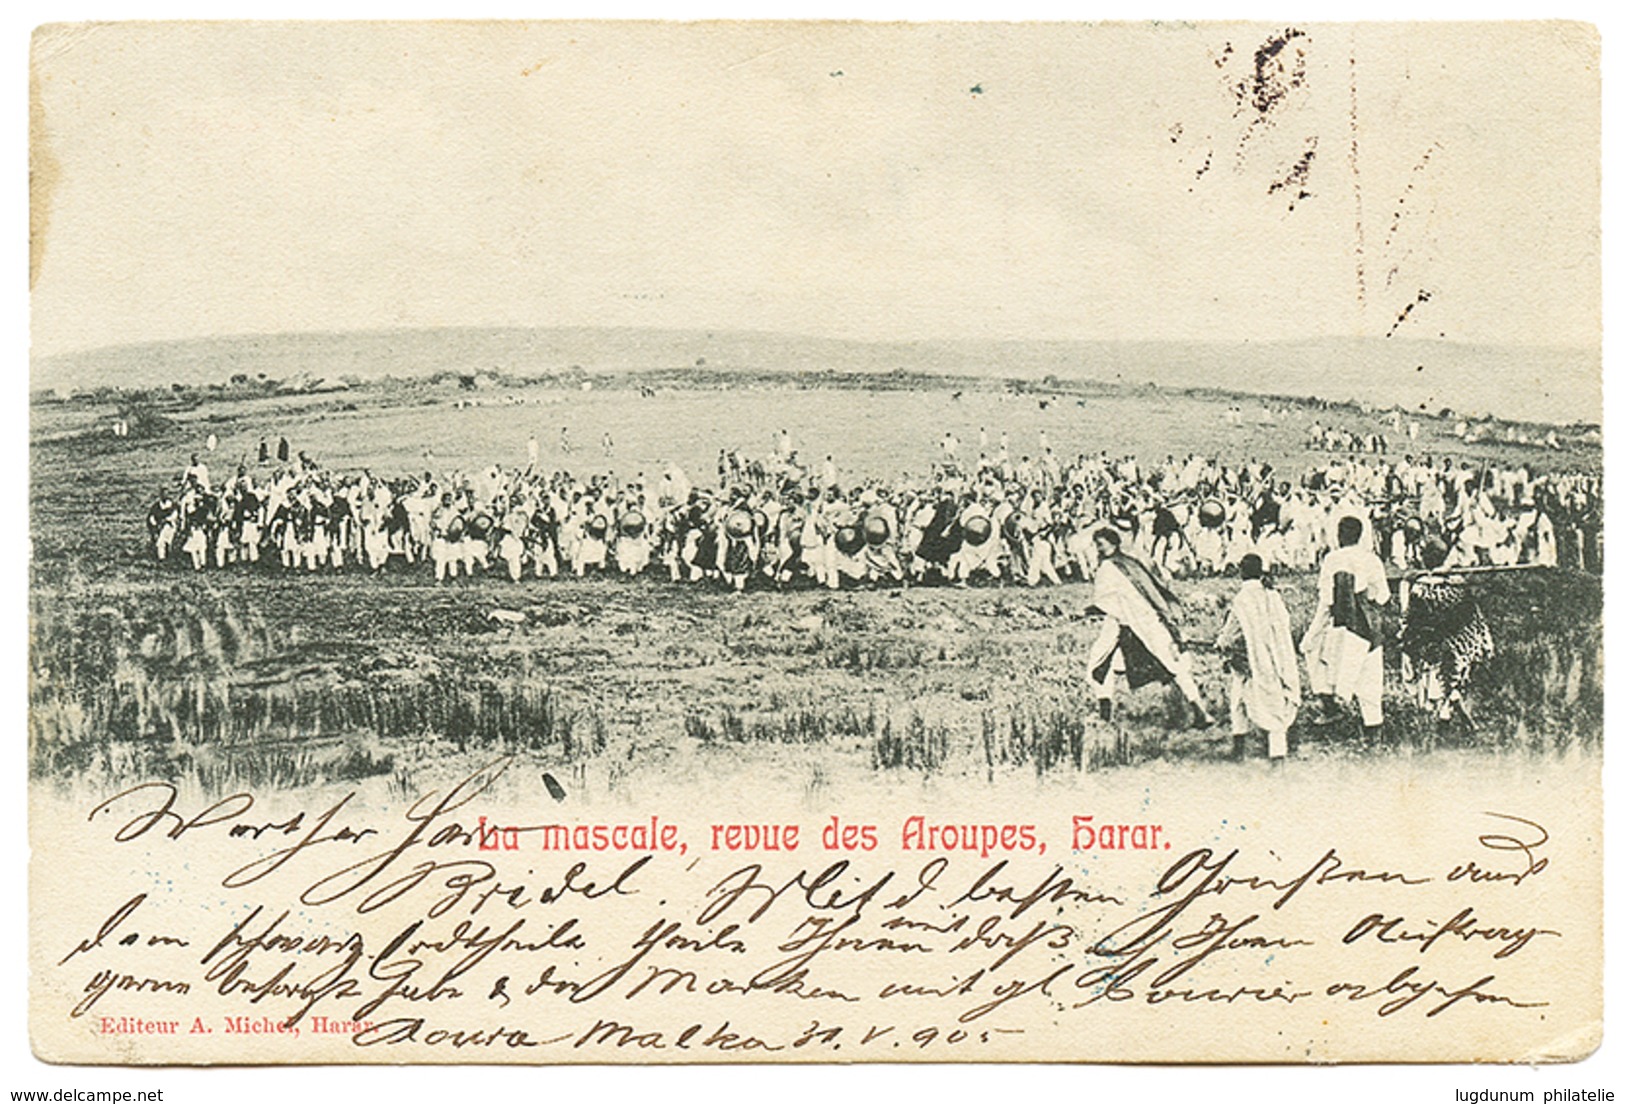 Werther Herr
La mascale, revue des Aroupes, Harar.
Bridel! Mit d. besten Grüßen aus
dem schwarz. Erdtheile theile Ihnen mit daß Ihren Auftrag
gerne besorgt habe & die Marken mit gl. Courier abgehen
Editeur A. Michel, Harar.
Doura Malka 31. V. 905
delcampe.net
lugdunum philatelie